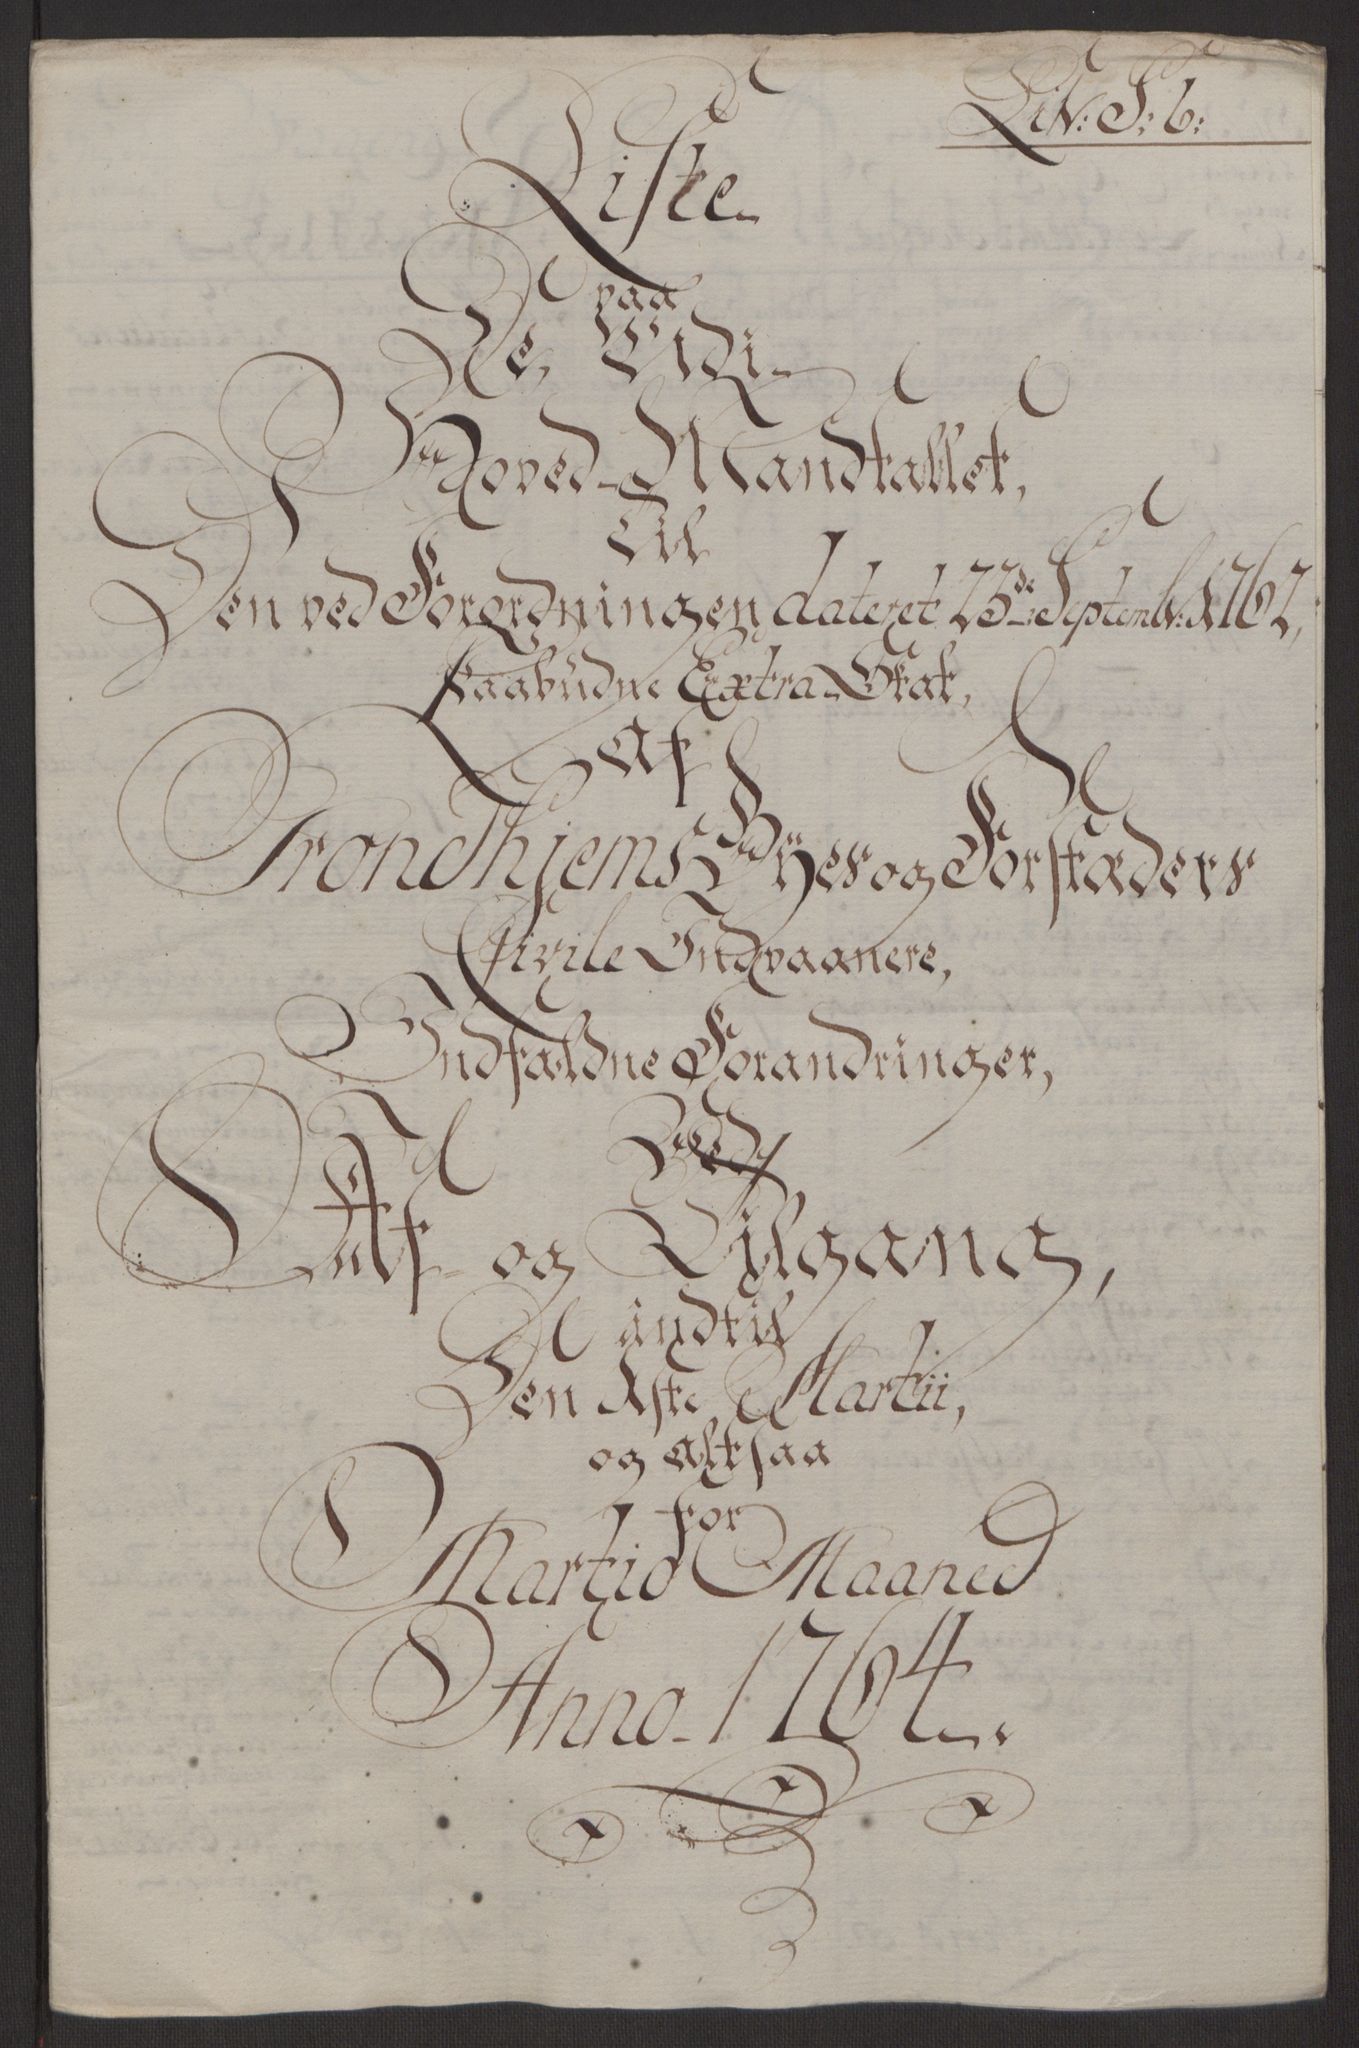 Lit: F: 6:
Liste
paa
De, Udi
Hoved-Mandtallet,
Til
Den ved Forordningen dateret 23de Septembr: 1762,
paabudne Extra-Skat,
Af
Trondhjems Byes og Forstæders
Civile Indvaanere,
Indfaldne Forandringer,
Ved
Af- og Tilgang,
indtil
Den 1ste Martii,
og altsaa
for
Martio Maaned
Anno 1764.